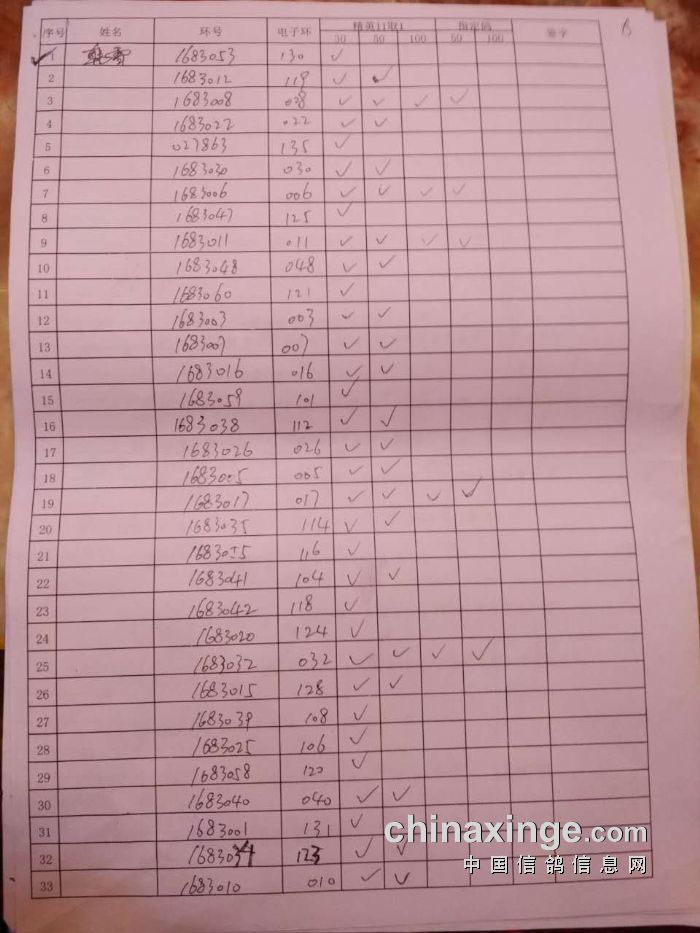 6
序号 姓名 环号 电子环 精英11取1 指定码 签字
30 50 100 50 100
✓ 1 1683053 130 ✓
2 1683012 119 ✓ ✓
3 1683008 028 ✓ ✓ ✓ ✓
4 1683022 022 ✓ ✓
5 027863 135 ✓
6 1683030 030 ✓ ✓
7 1683006 006 ✓ ✓ ✓ ✓
8 1683047 125 ✓
9 1683011 011 ✓ ✓ ✓ ✓
10 1683048 048 ✓ ✓
11 1683060 121 ✓
12 1683003 003 ✓ ✓
13 1683007 007 ✓ ✓
14 1683016 016 ✓ ✓
15 1683059 101 ✓
16 1683038 112 ✓ ✓
17 1683026 026 ✓ ✓
18 1683005 005 ✓ ✓
19 1683017 017 ✓ ✓ ✓ ✓
20 1683035 114 ✓ ✓
21 116 ✓
22 1683041 104 ✓ ✓
23 1683042 118 ✓
24 1683020 124 ✓
25 1683032 032 ✓ ✓ ✓ ✓
26 1683015 128 ✓ ✓
27 1683039 108 ✓
28 1683025 106 ✓
29 1683058 120 ✓
30 1683040 040 ✓ ✓
31 1683001 131 ✓
32 1683034 123 ✓ ✓
33 1683010 010 ✓ ✓
chinaxinge.com
中国信鸽信息网